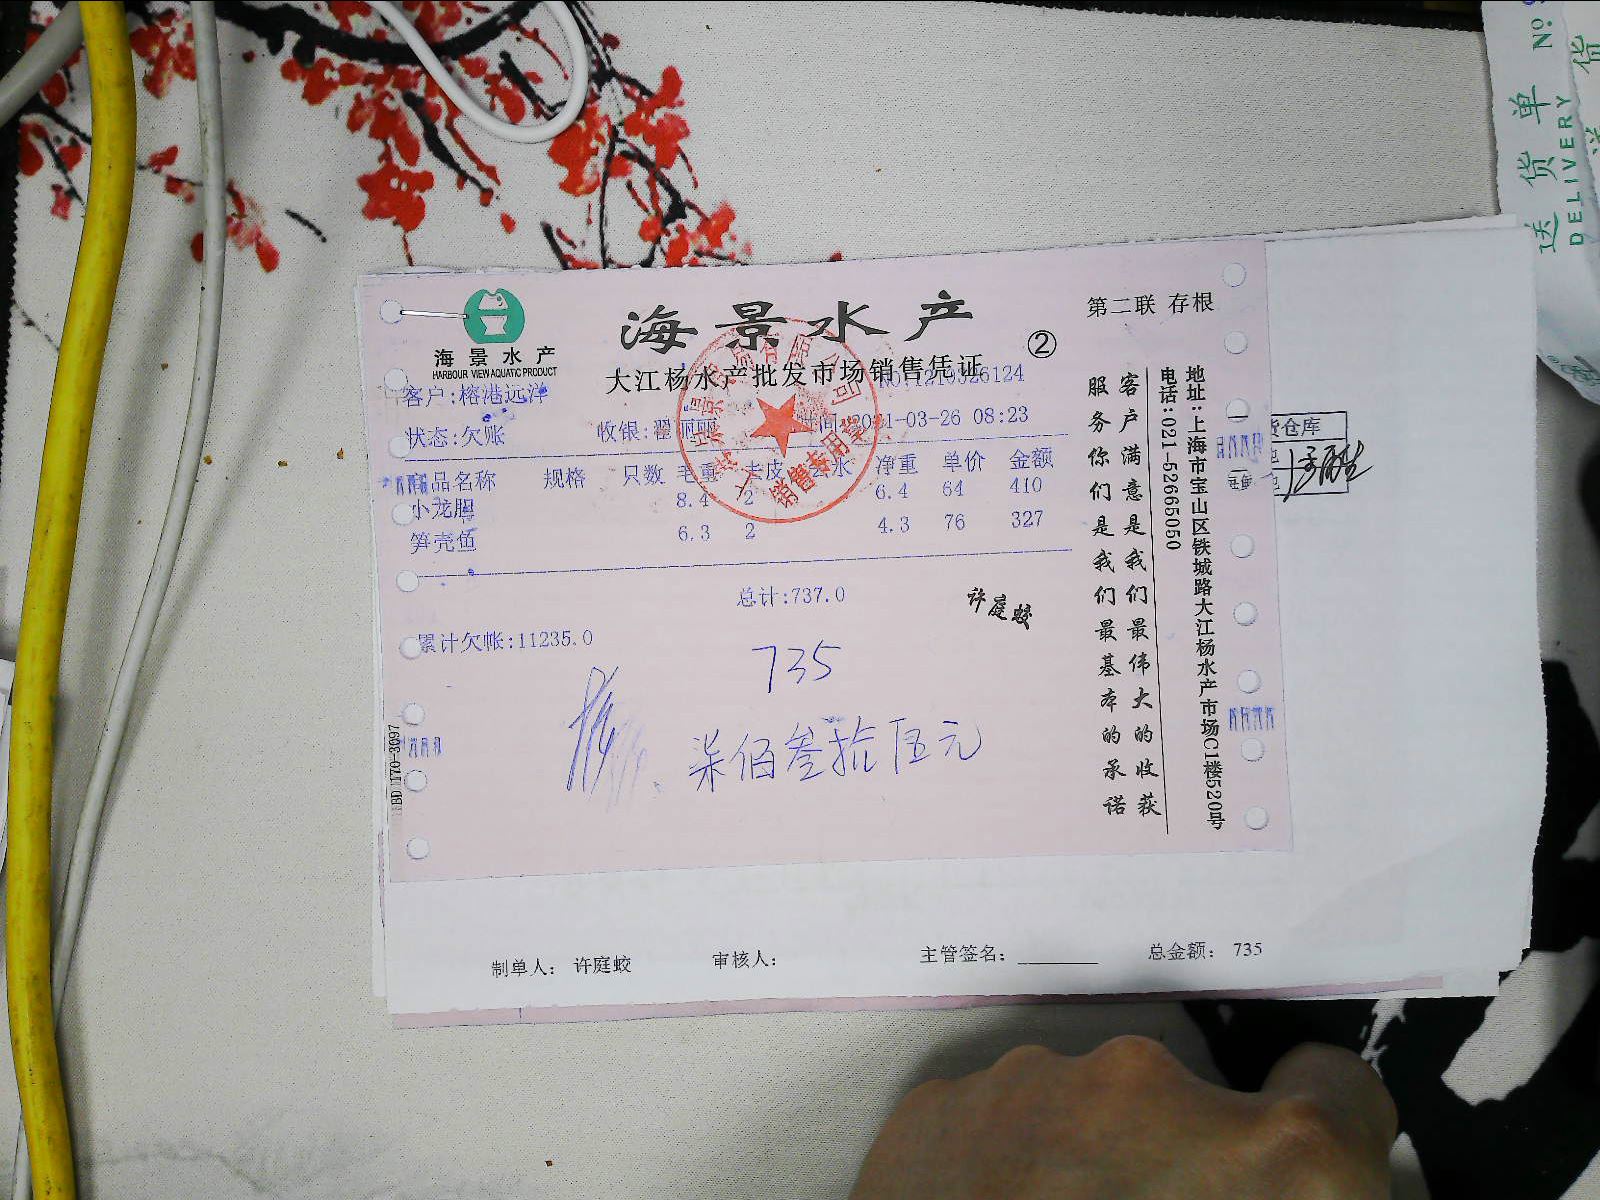 海景水产
HARBOUR VIEW AQUATIC PRODUCT
海景水产
大江杨水产批发市场销售凭证
②
第二联 存根
NO:1210326124
客户:榕港远洋
状态:欠账 收银:翟丽丽 时间:2021-03-26 08:23
商品名称 规格 只数 毛重 去皮 去水 净重 单价 金额
小龙胆 8.4 2 6.4 64 410
笋壳鱼 6.3 2 4.3 76 327
总计:737.0
许庭蛟
累计欠帐:11235.0
735
柒佰叁拾伍元
销售专用章
客户满意是我们最伟大的收获
服务你们是我们最基本的承诺
地址:上海市宝山区铁城路大江杨水产市场C1楼520号
电话:021-52665050
货仓库
制单人: 许庭蛟 审核人: 主管签名: 总金额: 735
送货单 No.
DELIVERY